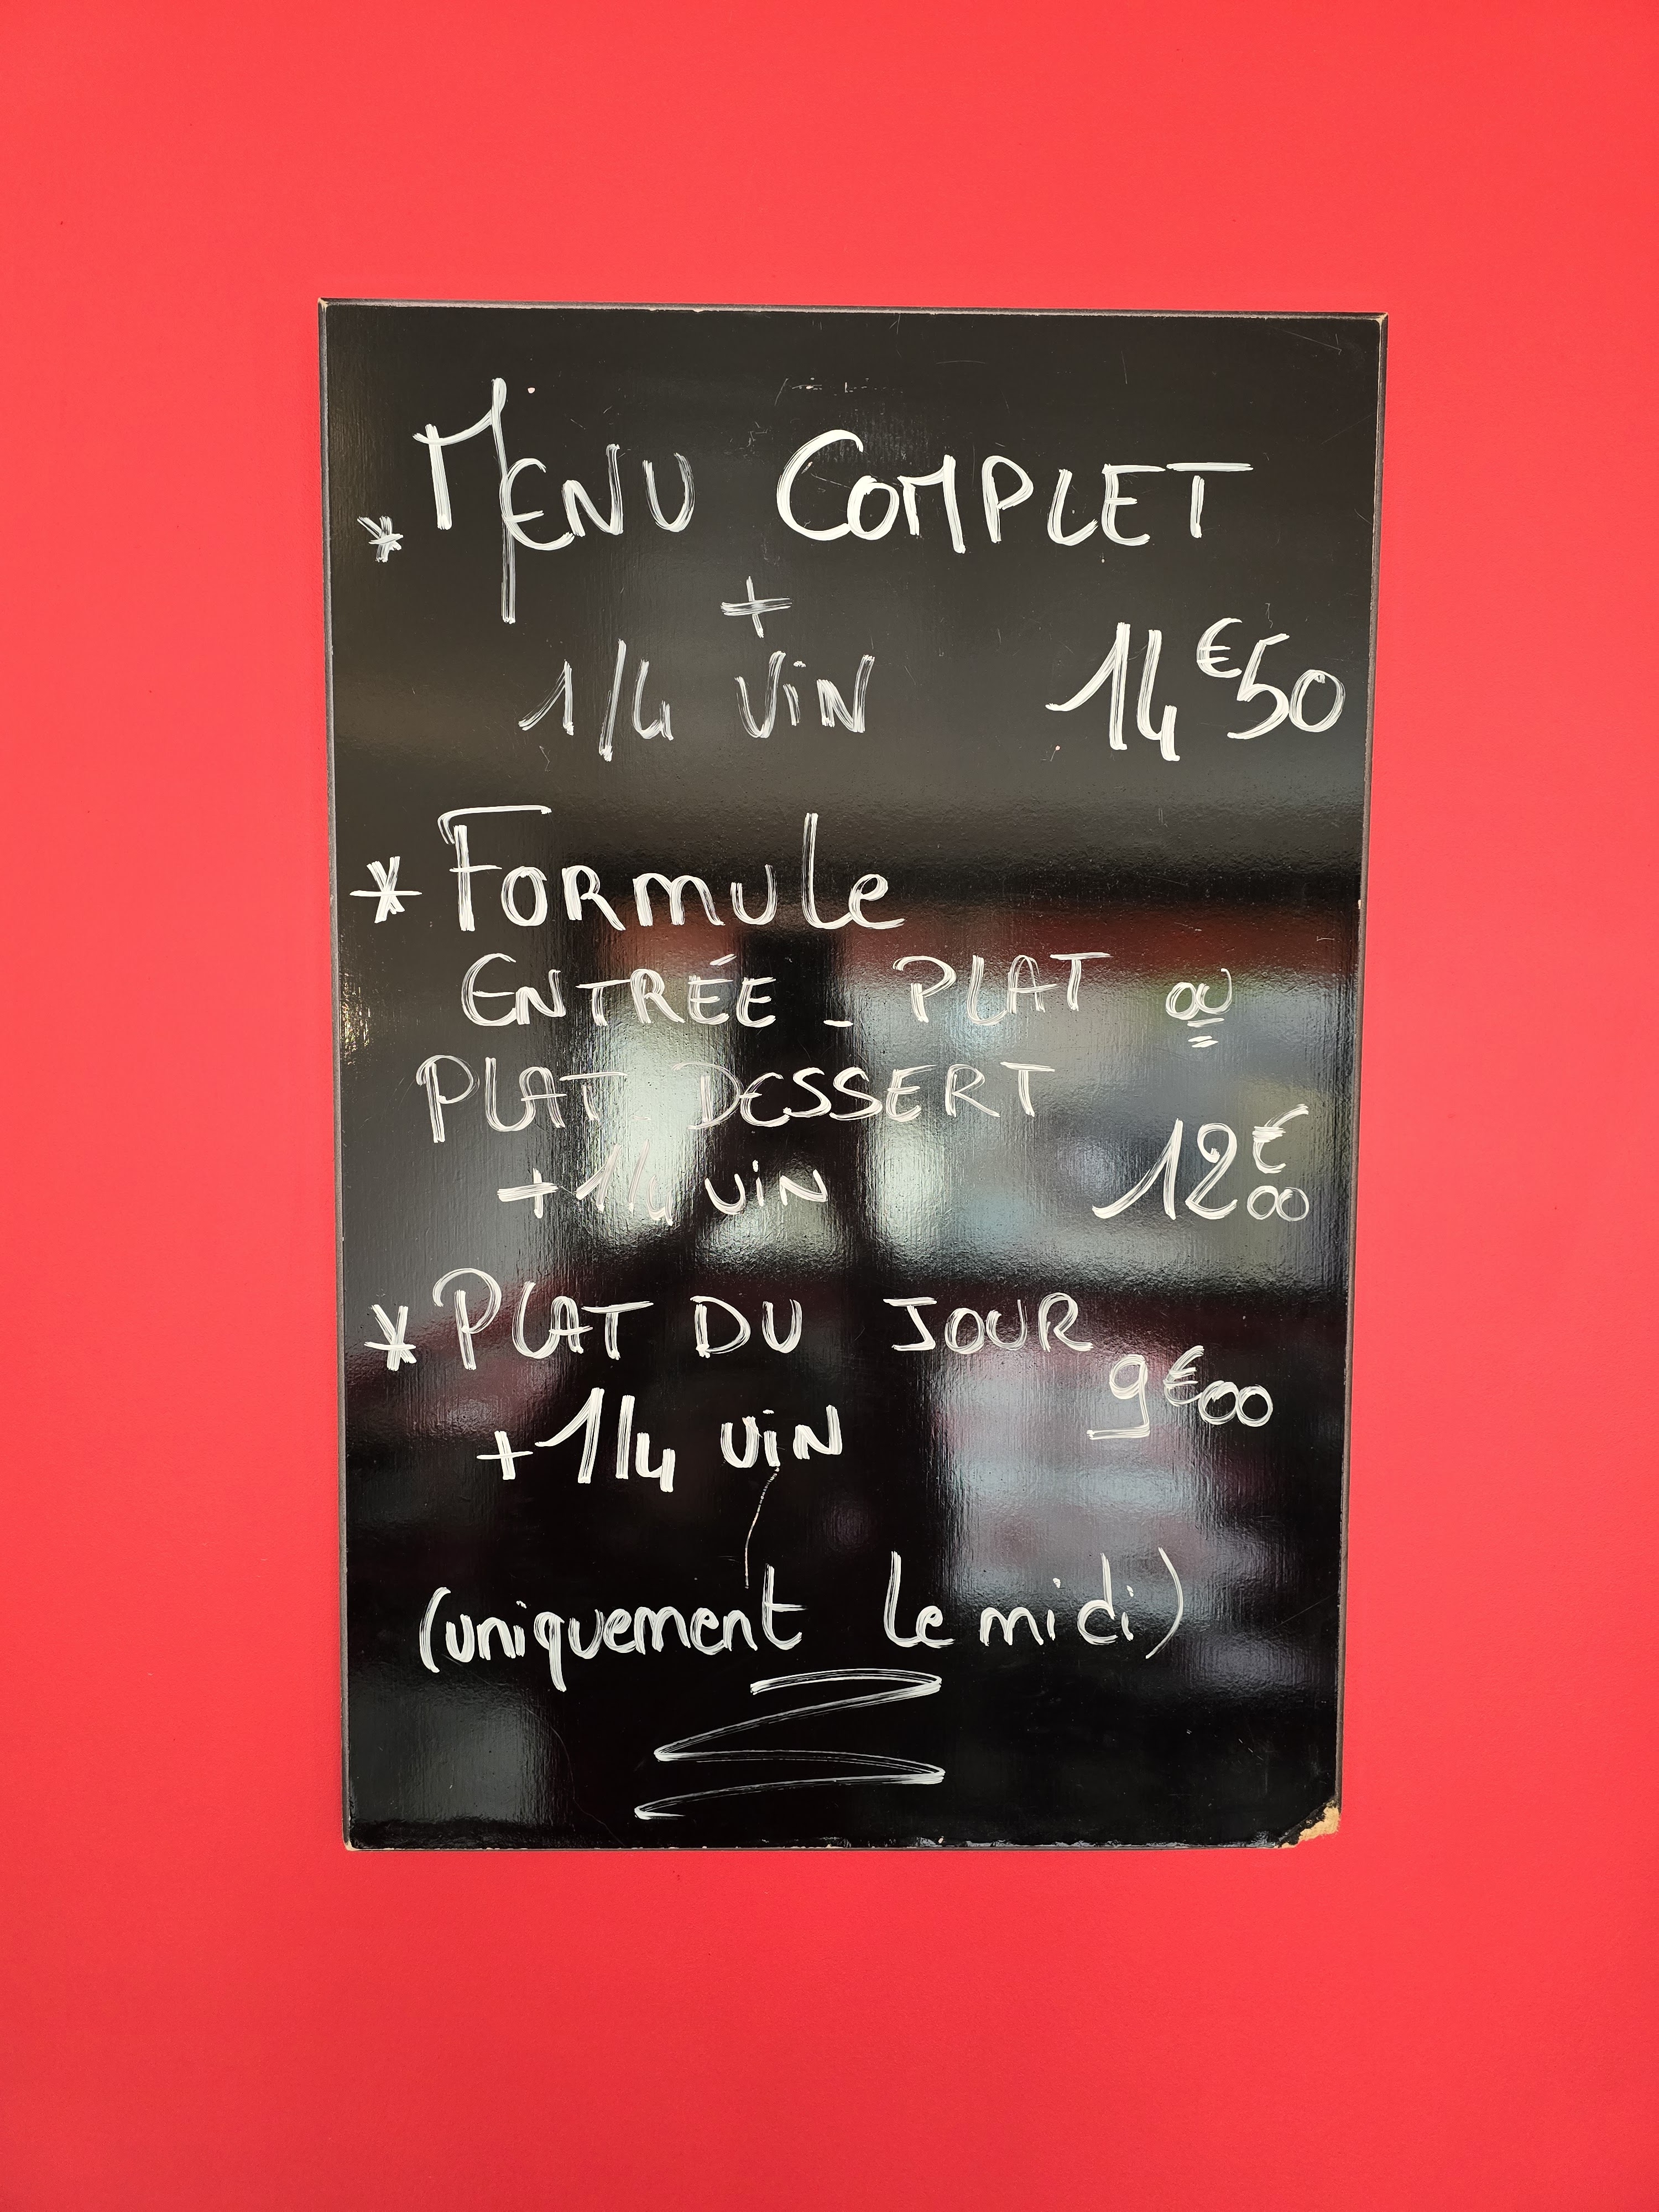 * MENU COMPLET
+
1/4 ViN 14€50
* Formule
ENTRÉE - PLAT ou
PLAT DESSERT
+ 1/4 viN 12€00
* PLAT DU JOUR
9€00
+ 1/4 viN
(uniquement le midi)